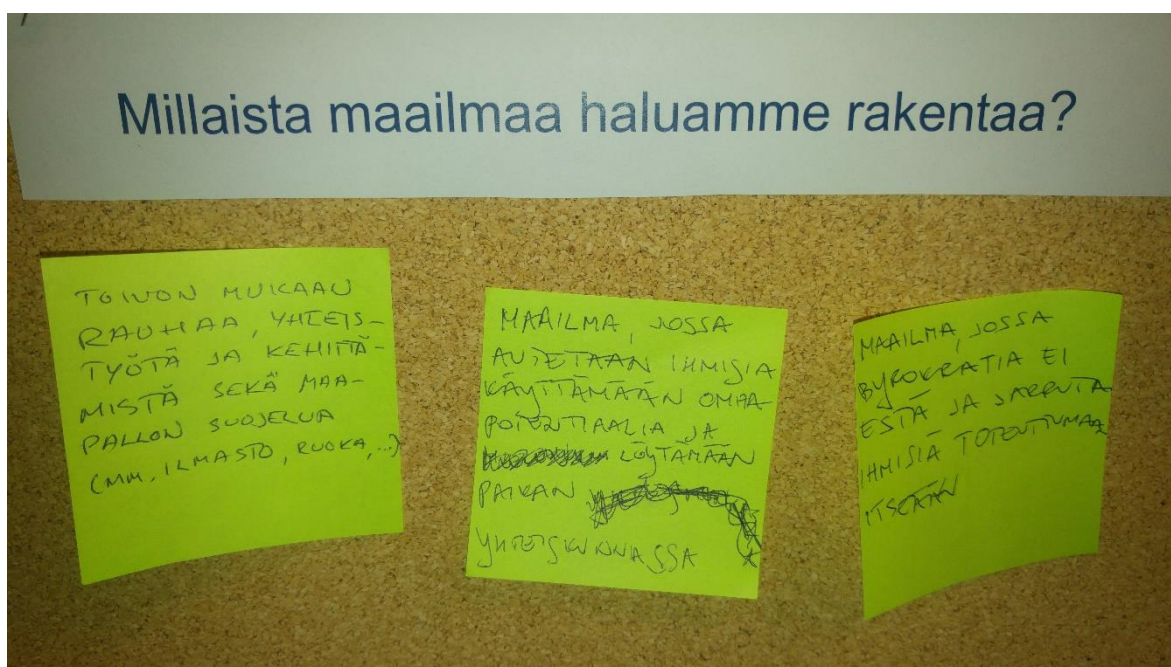 Millaista maailmaa haluamme rakentaa?
TOIVON MUKAAN
RAUHAA, YHTEIS-
TYÖTÄ JA KEHITTÄ-
MISTÄ SEKÄ MAA-
PALLON SUOJELUA
(MM. ILMASTO, RUOKA,...)
MAAILMA, JOSSA
AUTETAAN IHMISIÄ
KÄYTTÄMÄÄN OMAA
POTENTIAALIA JA
LÖYTÄMÄÄN
PAIKAN
YHTEISKUNNASSA
MAAILMA, JOSSA
BYROKRATIA EI
ESTÄ JA JARRUTA
IHMISIÄ TOTEUTTUMAA
ITSEÄÄN